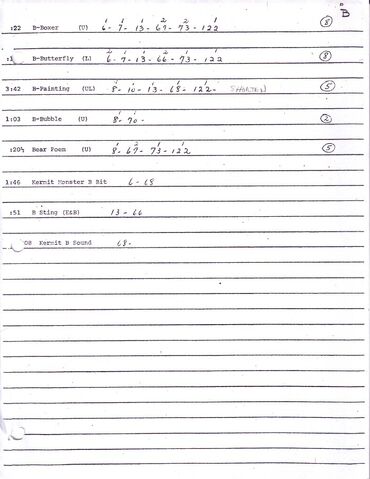 B
:22 B-Boxer (U) 6- 7- 13- 67- 73- 122 8
B-Butterfly (L) 6- 7- 13- 66- 73- 122 8
3:42 B-Painting (UL) 8- 10- 13- 68- 122- SHORTEN 5
1:03 B-Bubble (U) 8- 70- 2
:20½ Bear Poem (U) 8- 67- 73- 122 5
1:46 Kermit Monster B Bit 6-68
:51 B Sting (E&B) 13-66
08 Kermit B Sound 68-